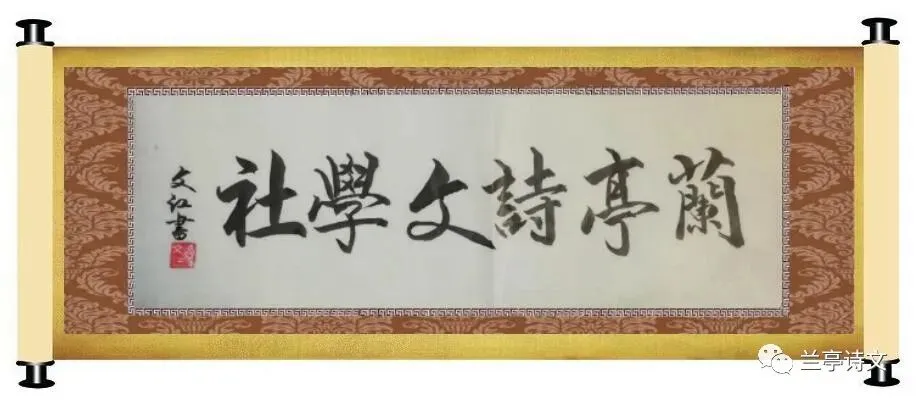 蘭亭詩文學社
文江書
兰亭诗文